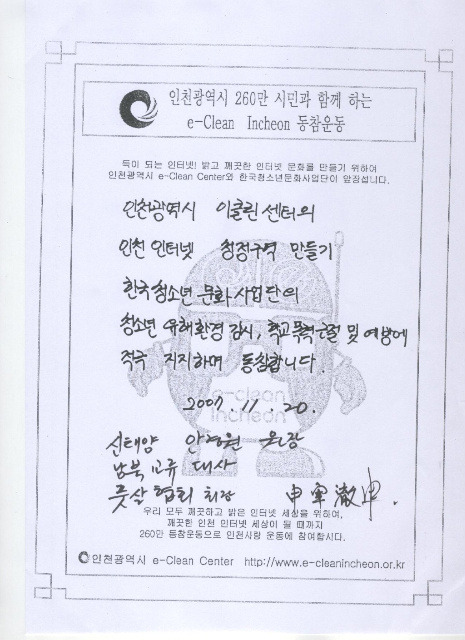 인천광역시 260만 시민과 함께 하는
e-Clean Incheon 동참운동
득이 되는 인터넷! 밝고 깨끗한 인터넷 문화를 만들기 위하여
인천광역시 e-Clean Center와 한국청소년문화사업단이 앞장섭니다.
인천광역시 이클린센터의
인천 인터넷 청정구역 만들기
한국청소년 문화사업단의
청소년 유해환경 감시, 학교폭력 근절 및 예방에
적극 지지하며 동참합니다.
e-clean
incheon
2007. 11. 20.
신태양 안경원 원장
남북교류 대사
풋살협회 회장 申
우리 모두 깨끗하고 밝은 인터넷 세상을 위하여,
깨끗한 인천 인터넷 세상이 될 때까지
260만 동참운동으로 인천사랑 운동에 참여합시다.
인천광역시 e-Clean Center http://www.e-cleanincheon.or.kr